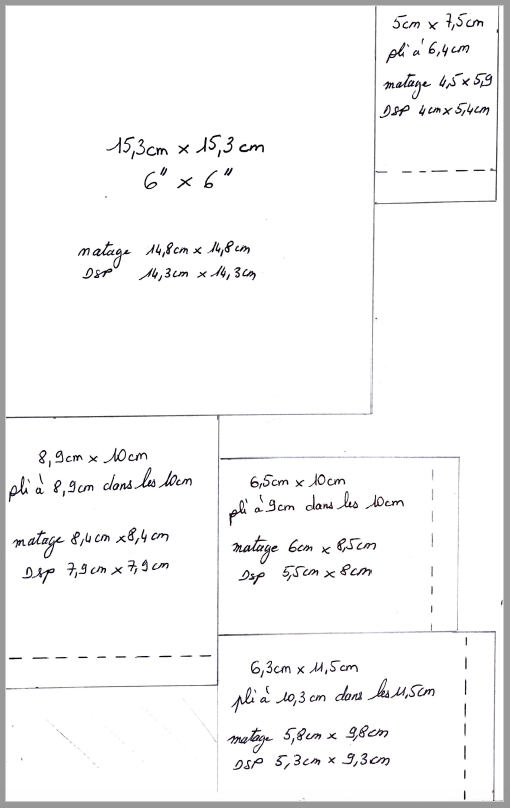 5cm x 7,5cm
pli à 6,4cm
matage 4,5 x 5,9
DSP 4cm x 5,4cm
15,3cm x 15,3cm
6" x 6"
matage 14,8cm x 14,8cm
DSP 14,3cm x 14,3cm
8,9cm x 10cm
pli à 8,9cm dans les 10cm
matage 8,4cm x 8,4cm
DSP 7,9cm x 7,9cm
6,5cm x 10cm
pli à 9cm dans les 10cm
matage 6cm x 8,5cm
DSP 5,5cm x 8cm
6,3cm x 11,5cm
pli à 10,3cm dans les 11,5cm
matage 5,8cm x 9,8cm
DSP 5,3cm x 9,3cm